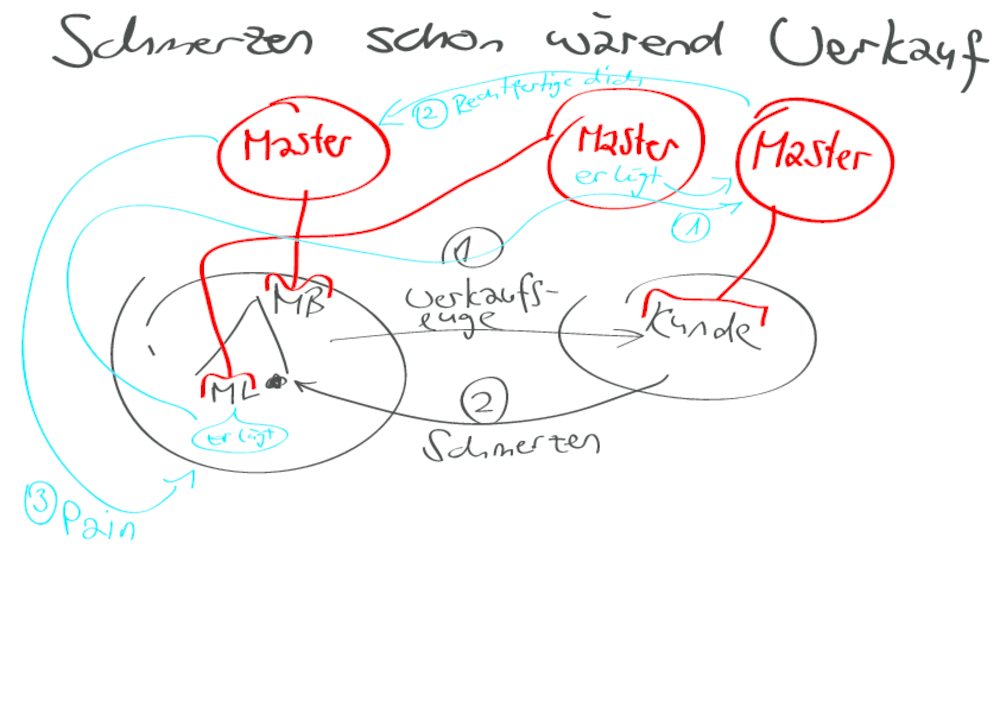 Schmerzen schon wärend Verkauf
② Rechtfertige dich
Master
Master
er lügt
Master
①
①
MB
Verkaufs-
euge
Kunde
ML
er lügt
②
Schmerzen
③ Pain